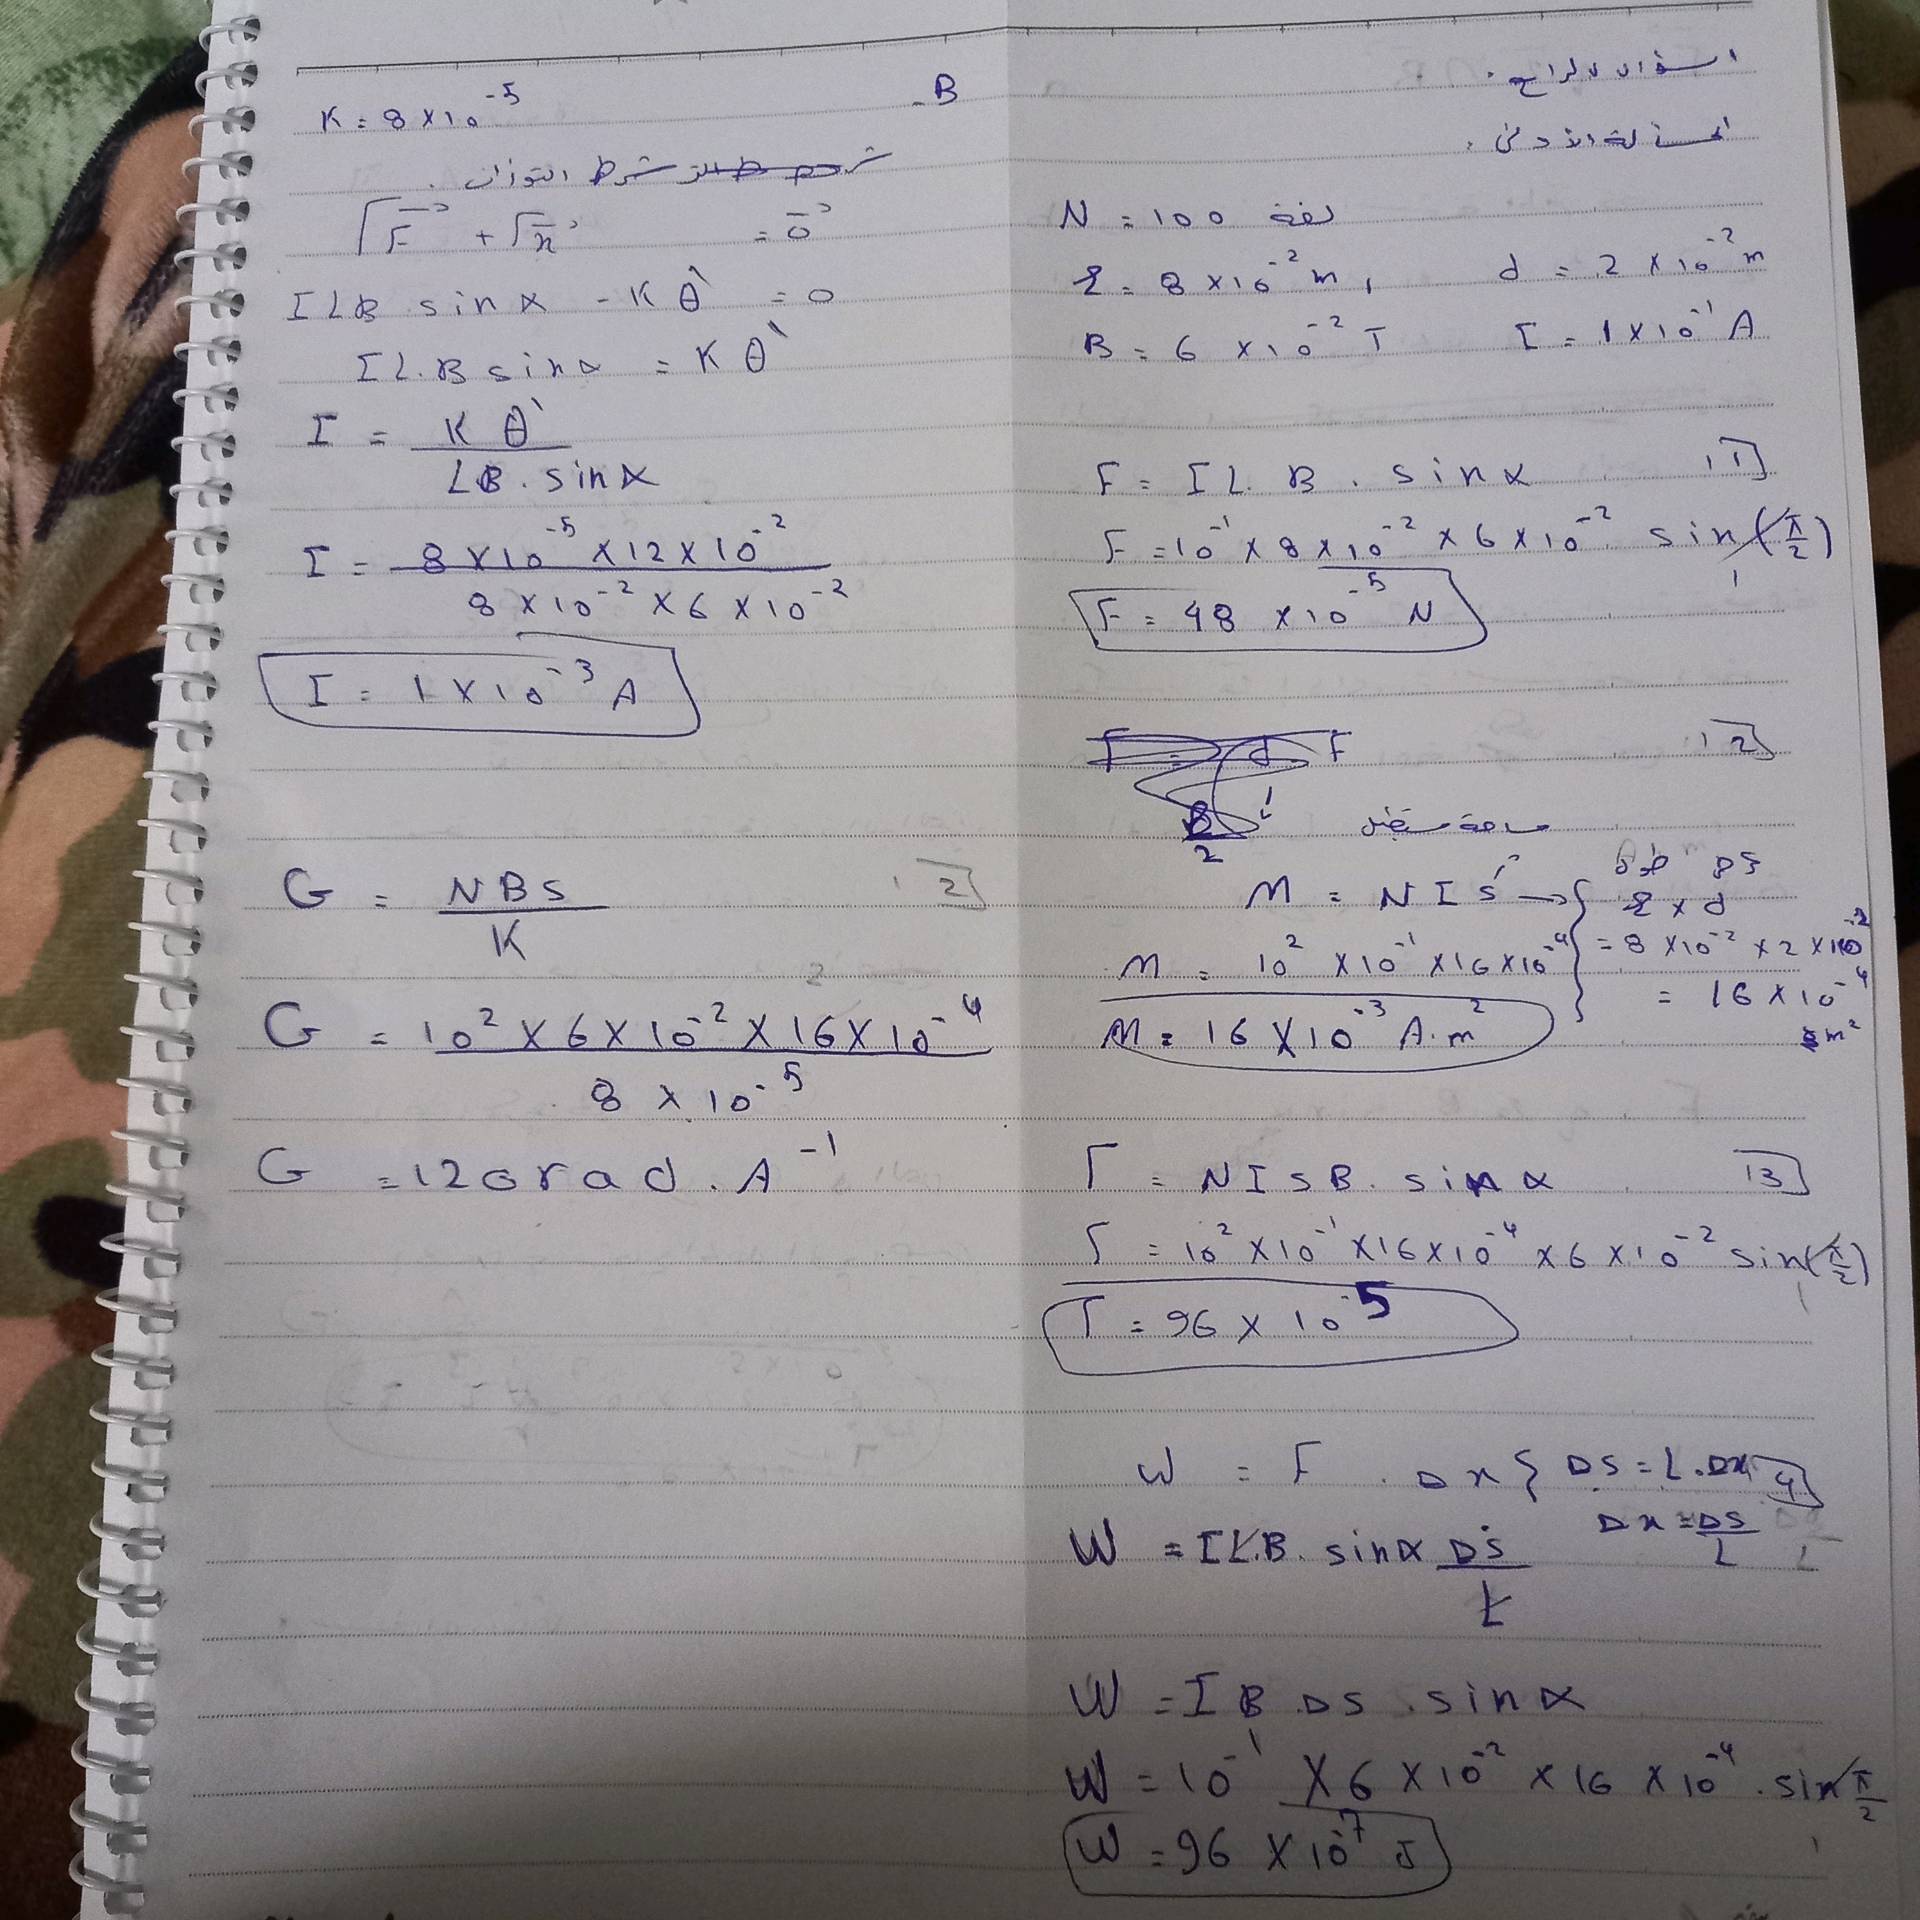 السؤال الرابع :
المسألة الأولى :
N = 100 لفة
L = 8 × 10⁻² m , d = 2 × 10⁻² m
B = 6 × 10⁻² T I = 1 × 10⁻¹ A
1
F = I L . B . sin α
F = 10⁻¹ × 8 × 10⁻² × 6 × 10⁻² sin (π/2)
1
F = 48 × 10⁻⁵ N
2
مساحة مستطيل
M = N I S → { L × d
= 8 × 10⁻² × 2 × 10⁻²
M = 10² × 10⁻¹ × 16 × 10⁻⁴
= 16 × 10⁻⁴ m²
M = 16 × 10⁻³ A.m²
3
Γ = N I S B . sin α
Γ = 10² × 10⁻¹ × 16 × 10⁻⁴ × 6 × 10⁻² sin (π/2)
1
Γ = 96 × 10⁻⁵
4
W = F . Δx { Δs = L . Δx
Δx = Δs/L
W = I L . B . sin α Δs/L
W = I B . Δs . sin α
W = 10⁻¹ × 6 × 10⁻² × 16 × 10⁻⁴ . sin π/2
1
W = 96 × 10⁻⁷ J
-B
K = 8 × 10⁻⁵
شرط التوازن .
= 0⃗
I L B sin α - K θ' = 0
I L . B sin α = K θ'
I = K θ' / L B . sin α
I = 8 × 10⁻⁵ × 12 × 10⁻² / 8 × 10⁻² × 6 × 10⁻²
I = 1 × 10⁻³ A
2
G = N B S / K
G = 10² × 6 × 10⁻² × 16 × 10⁻⁴ / 8 × 10⁻⁵
G = 120 rad . A⁻¹